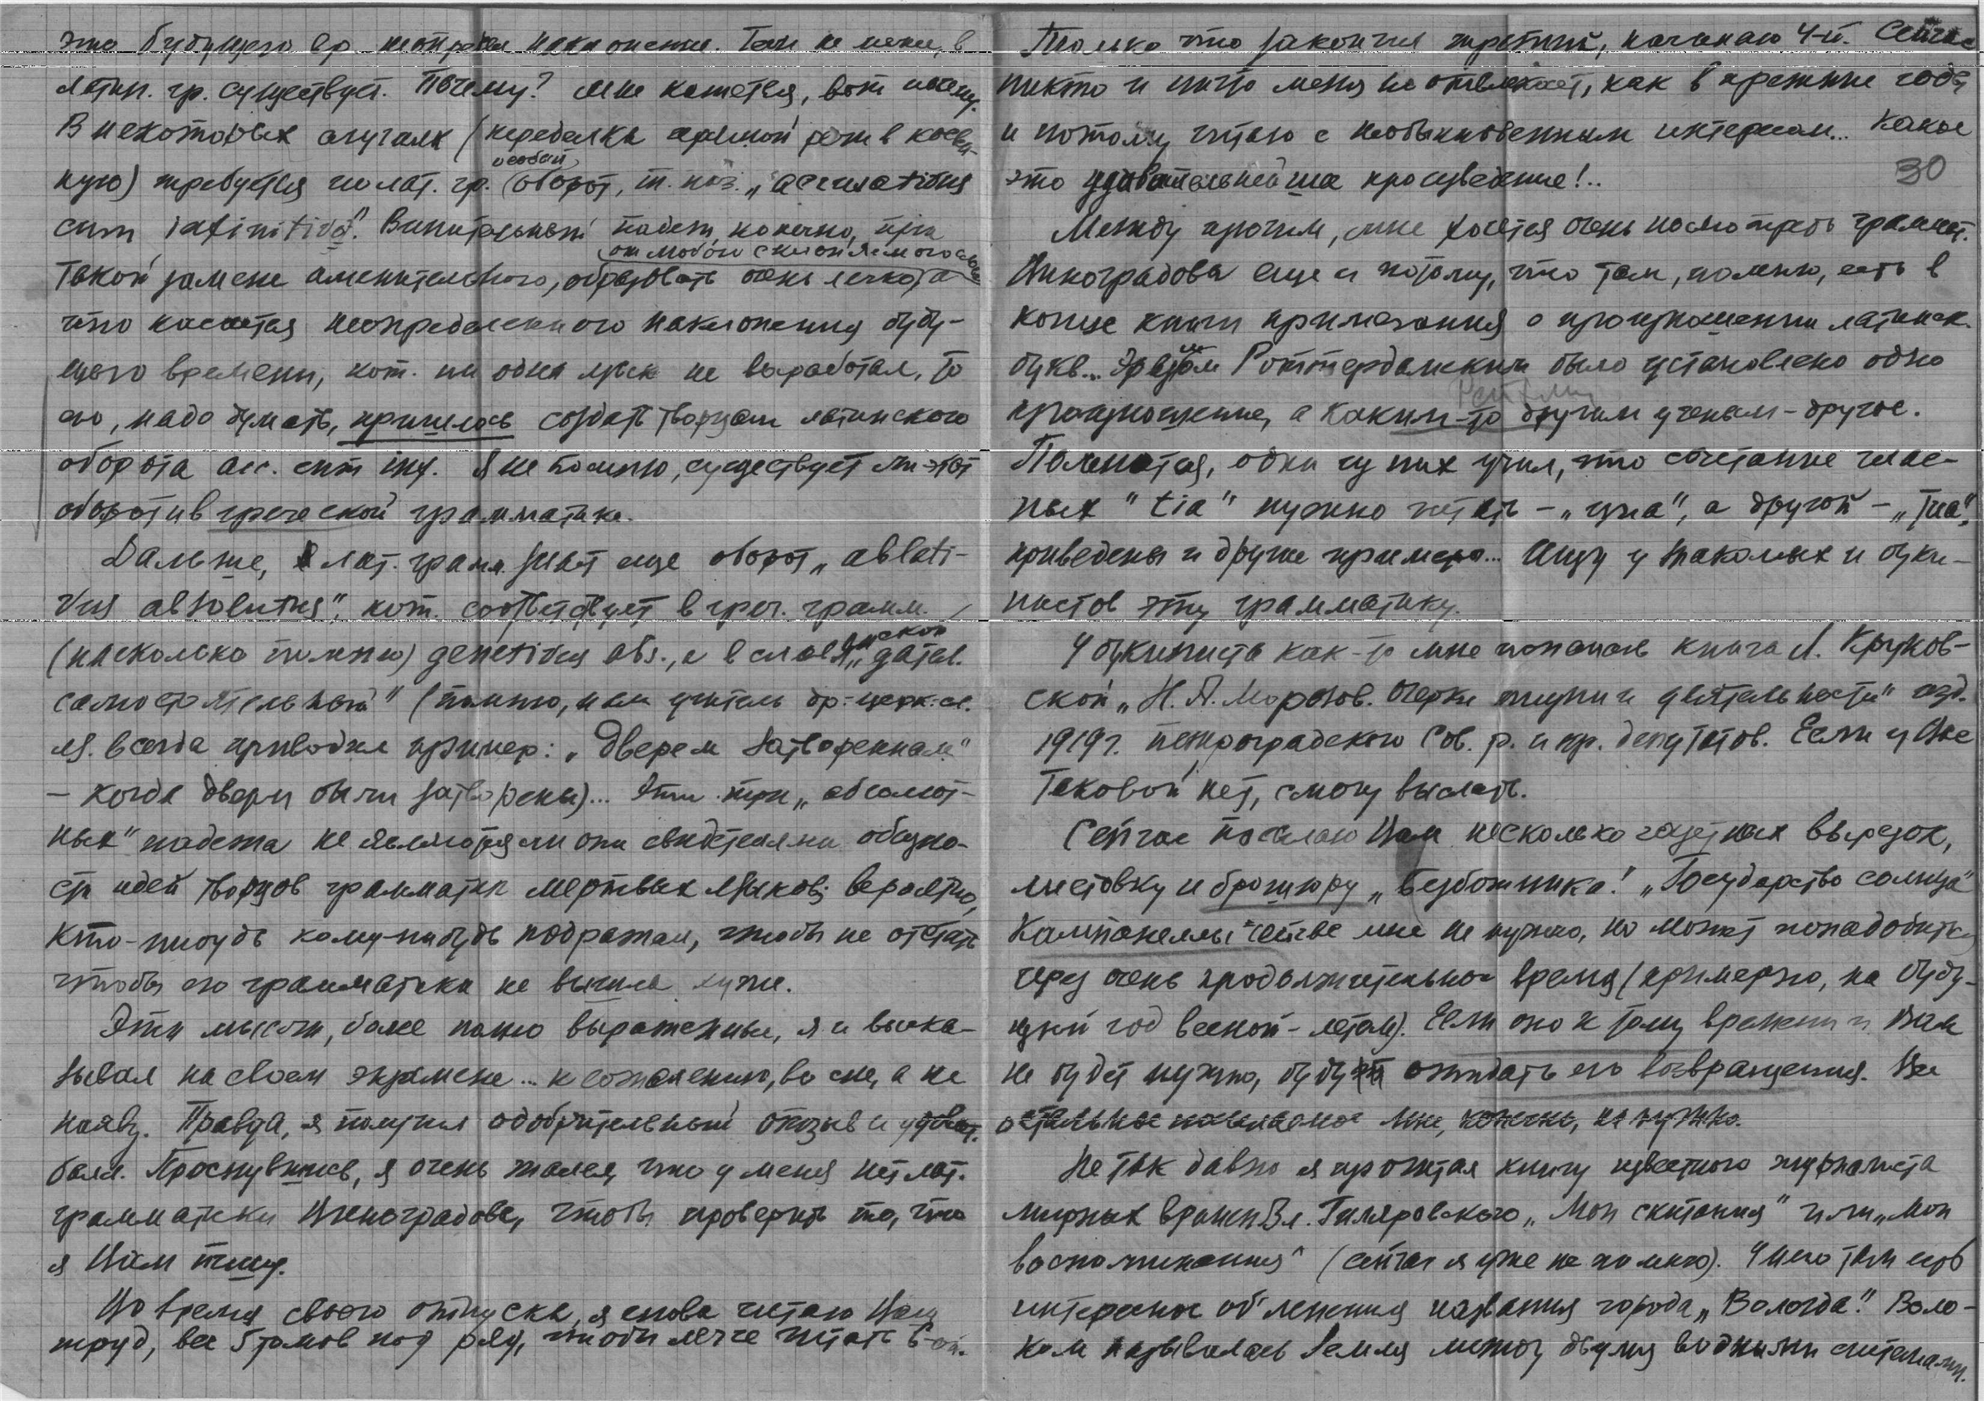 это будущего вр. неопред. наклонения. Тем не менее, в
латин. гр. существует. Почему? Мне кажется, вот почему.
В некоторых случаях (переделка прямой речи в косвен-
ную) требуется по лат. гр. особый оборот, т. наз. „accusativus
cum infinitivo". Винительный падеж, конечно, при
такой замене именительного, образовать очень легко от любого склоняемого слова, а
что касается неопределенного наклонения буду-
щего времени, кот. ни один язык не выработал, то
его, надо думать, пришлось создать творцам латинского
оборота acc. cum inf. Я не помню, существует ли этот
оборот и в греческой грамматике.
Дальше, лат. грам. знает еще оборот „ablati-
vus absolutus", кот. соответствует в греч. грамм.
(насколько помню) genetivus abs., а в славянском „дател.
самостоятельный" (помню, наш учитель др.-церк.-сл.
яз. всегда приводил пример: „Дверем затворенным"
– когда двери были затворены)... Эти три „абсолют-
ных" падежа не являются ли они свидетелями общно-
сти идей творцов грамматик мертвых языков; вероятно,
кто-нибудь кому-нибудь подражал, чтобы не отстать
чтобы его грамматика не вышла хуже.
Эти мысли, более полно выраженные, я и выска-
зывал на своем экзамене... к сожалению, во сне, а не
наяву. Правда, я получил одобрительный отзыв и удовл.
балл. Проснувшись, я очень жалел, что у меня нет лат.
грамматики Виноградова, чтобы проверить то, что
я Вам пишу.
Во время своего отпуска, я снова читаю Ваш
труд, все 5 томов под ряд, чтобы легче читать 6-ой.
Только что закончил третий, начинаю 4-й. Сейчас
никто и ничто меня не отвлекает, как в прежние годы
и потому читаю с необыкновенным интересом... Какое
это удивительнейшее произведение!..
30
Между прочим, мне хочется очень посмотреть граммат.
Виноградова еще и потому, что там, помню, есть в
конце книги примечания о произношении латинск.
букв... Эразмом Роттердамским было установлено одно
произношение, а каким-то другим ученым – другое.
Помнится, один из них учил, что сочетание глас-
ных "tia" нужно читать – „циа", а другой – „тиа",
приведены и другие примеры... Ищу у знакомых и буки-
нистов эту грамматику.
У букиниста как-то мне попалась книга Л. Круков-
ской „Н. А. Морозов. Очерки жизни и деятельности" изд.
1919 г. петроградского Сов. р. и кр. депутатов. Если у Вас
таковой нет, смогу выслать.
Сейчас посылаю Вам несколько газетных вырезок,
листовку и брошюру „Безбожника". „Государство солнца"
Кампанеллы сейчас мне не нужно, но может понадобиться
через очень продолжительное время (примерно, на буду-
щий год весной - летом). Если оно к тому времени и Вам
не будет нужно, буду ожидать его возвращения. Все
остальное посылаемое мне, конечно, не нужно.
Не так давно я прочитал книгу известного журналиста
мирных времен Вл. Гиляровского „Мои скитания" или „Мои
воспоминания" (сейчас я уже не помню). У него там есть
интересное об'яснение названия города „Вологда". Воло-
ком называлась земля между двумя водными системами.